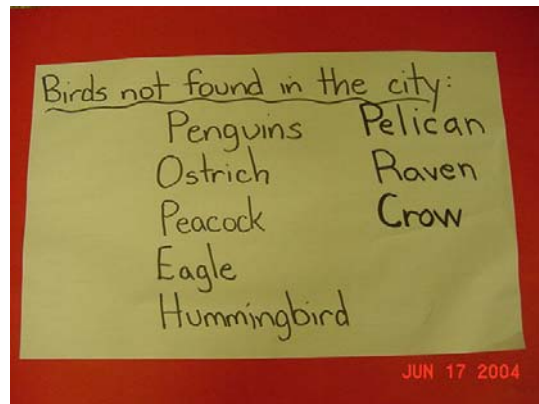 Birds not found in the city:
Penguins
Ostrich
Peacock
Eagle
Hummingbird
Pelican
Raven
Crow
JUN 17 2004